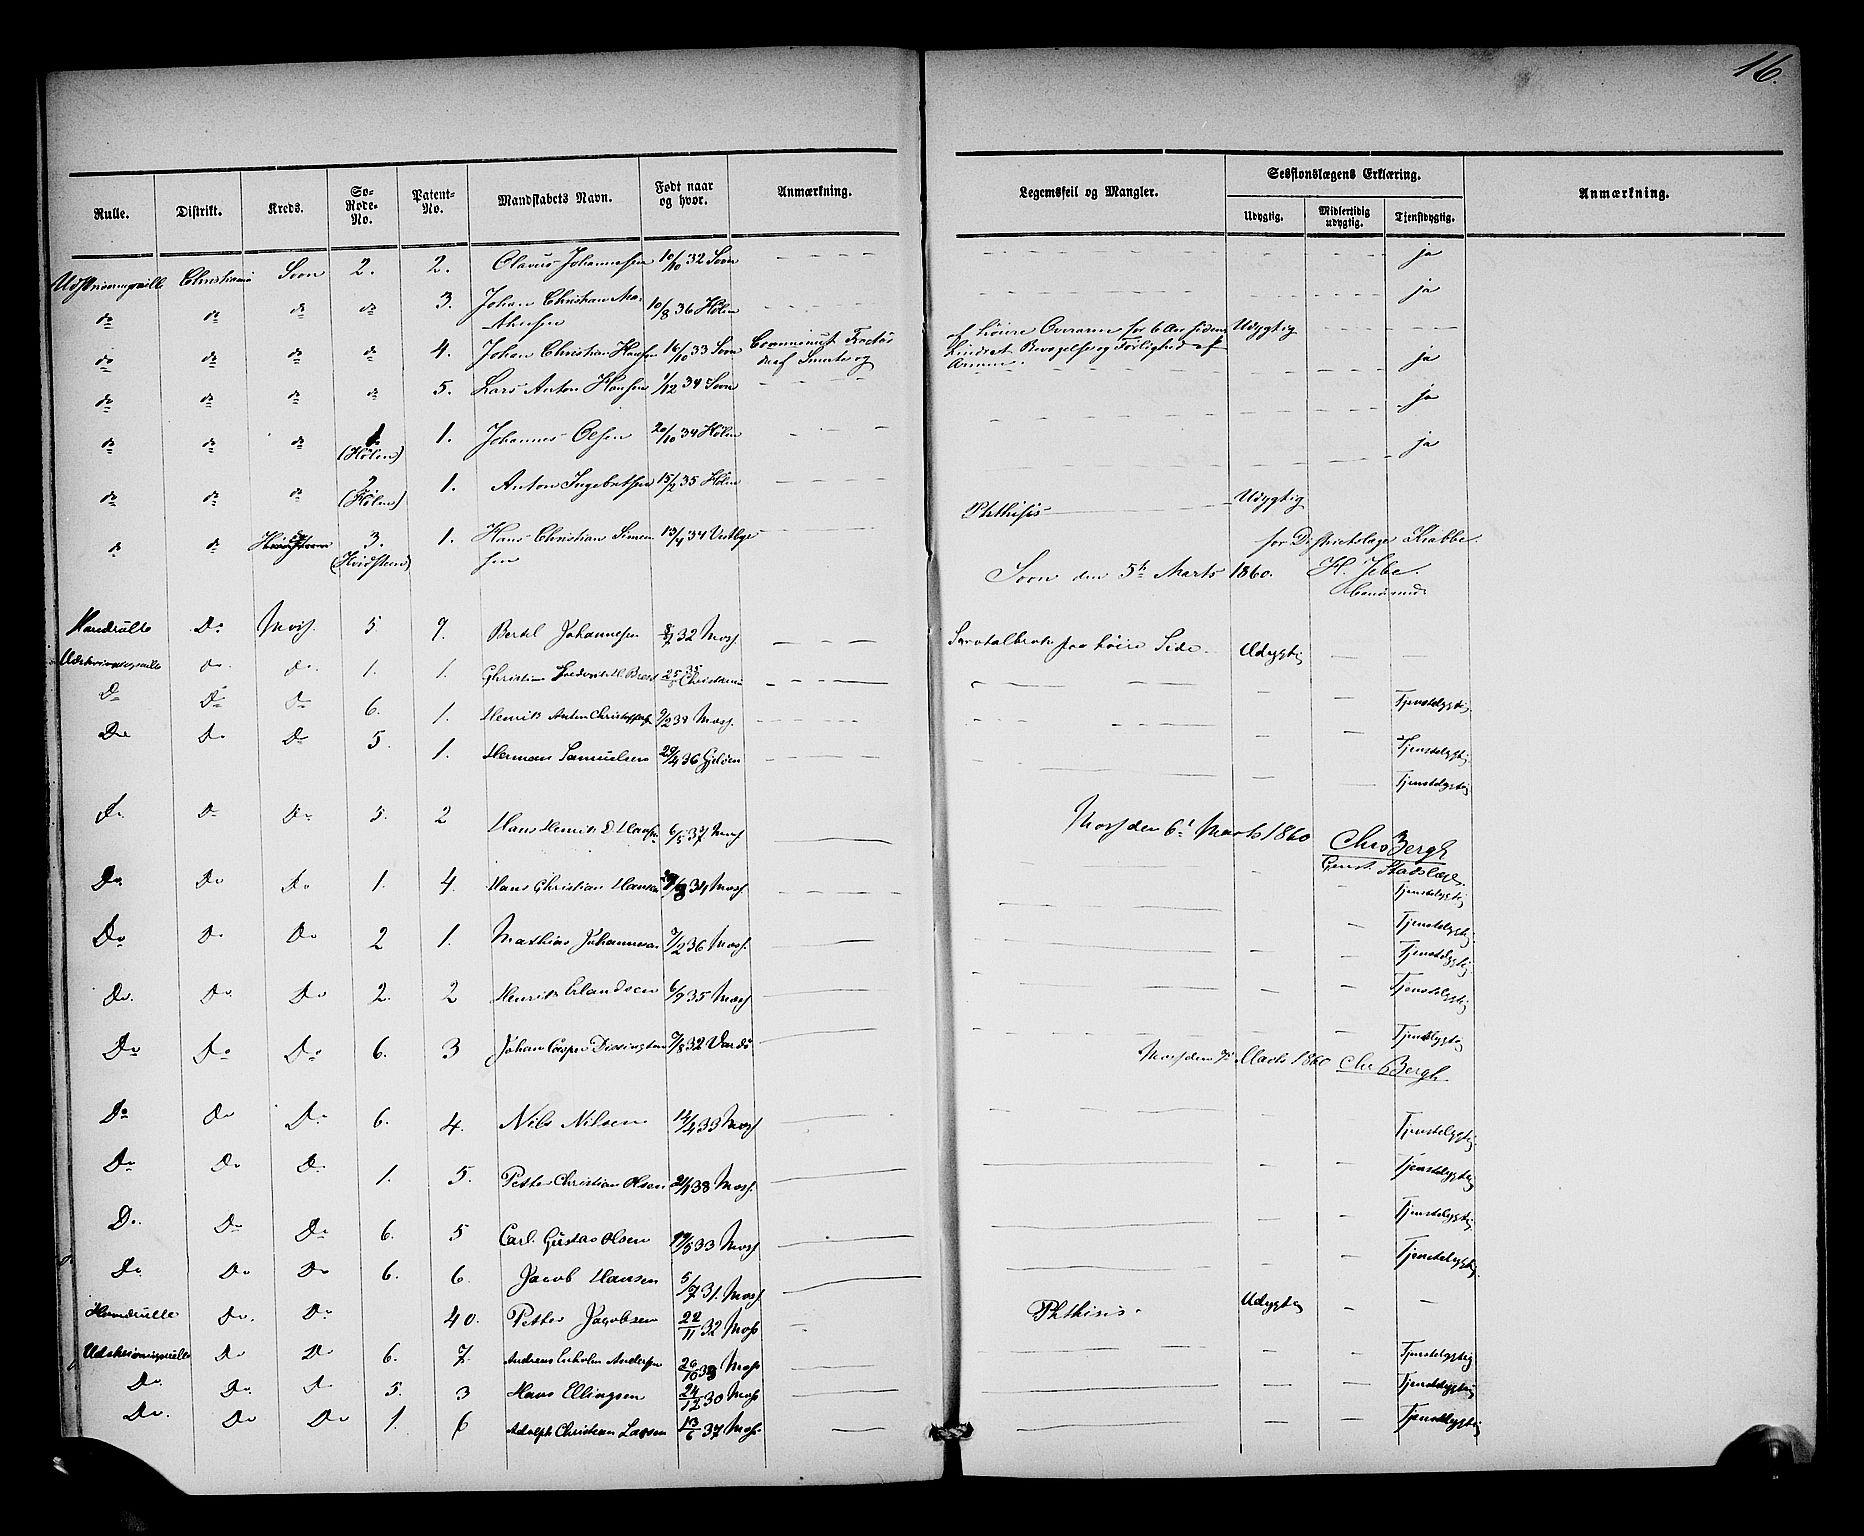 16.
Rulle. Distrikt. Kreds. So-Rode-No. Patent-No. Mandskabets Navn. Født naar og hvor. Anmærkning. Legemsfeil og Mangler. Sessionslægens Erklæring. Anmærkning.
Udygtig. Midlertidig udygtig. Tjenstdygtig.
Udskrivningsrulle Christiania Soon 2. 2. Olaves Johannesen 10/10 32 Soon - - - - ja
do do do do 3. Johan Christian Ma- 10/8 36 Hölen - - - - ja
thisen
do do do do 4. Johan Christian Hansen 16/10 33 Soon
af höire Overarm for 6 Aar siden Udygtig
deraf Smerte og
hindret Bevægelse og Förlighed af
Armen.
do do do do 5. Lars Anton Hansen 1/12 34 Soon - - - - ja
do do do 1 1. Johannes Olsen 20/10 34 Hölen - - - ja
(Hölen)
do do do 2 1. Anton Ingebretsen 15/2 35 Hölen - - - ja
(Hölen)
do do 3. 1. Hans Christian Simen 13/4 34 - - - Phthisis Udygtig
(Hvidsteen) sen
for Districtslæge Krabbe.
Soon den 5te Marts 1860. H. Jebe.
Hovedrulle Do Moss. 5 9. Bertel Johannesen 8/7 32 Moss - - - Scrotalbrok paa höire Side. Udygtig — —
Udskrivningsrulle Do. Do. 1. 1. Christian Frederik 25 35 Christiania - - - - Tjenstdygtig
Do Do Do 6. 1. Henrik Anton Christoffers 9/2 38 Moss. - - - - Tjenstdygtig
Do Do Do 5. 1. Herman Samuelsen 29/4 36 Gjelöen - - - - Tjenstdygtig
Do. Do Do 5. 2 Hans Henrik D. Hansen 6/5 37 Moss —
Moss den 6t Marts 1860 Chr Bergh
Const. Stadslæge.
Do. Do Do 1. 4. Hans Christian Hansen 34 Moss. - - - - Tjenstdygtig
Do Do Do 2 1. Mathias Johannesen 7/2 36 Moss. — — — Tjenstdygtig
Do. Do. Do 2. 2 Henrik Erlandsen 6/9 35 Moss — — — Tjenstdygtig
Tjenstdygtig
Do Do Do 6. 3 Johan Casper Dissington 7/8 32 Vardö — - - - Tjenstdygtig
Moss den 7de Marts 1860 Chr Bergh
Do Do Do. 6. 4. Nils Nilsen 14/4 33 Moss — — — Tjenstdygtig
Do Do Do. 1. 5. Petter Christian Olsen 38 Moss. — — — Tjenstdygtig
Do. Do Do 6. 5 Carl Gustav Olsen 17/5 33 Moss — — — Tjenstdygtig
Do. Do Do 6. 6. Jacob Hansen 5/7 31. Moss. — — — Tjenstdygtig
Hovedrulle Do. Do 40. Petter Jacobsen 22/11 32 Moss — Phthisis. Udygtig — —
Udskrivningsrulle Do Do 6. 7. Andreas Andersen 26/10 Moss — — — Tjenstdygtig
Do. Do. Do 5. 3 Hans Ellingsen 24/12 30 Moss — — — Tjenstdygtig
Do. Do Do 1. 6 Adolph Christian Larsen 13/6 37 Moss. — — — Tjenstdygtig